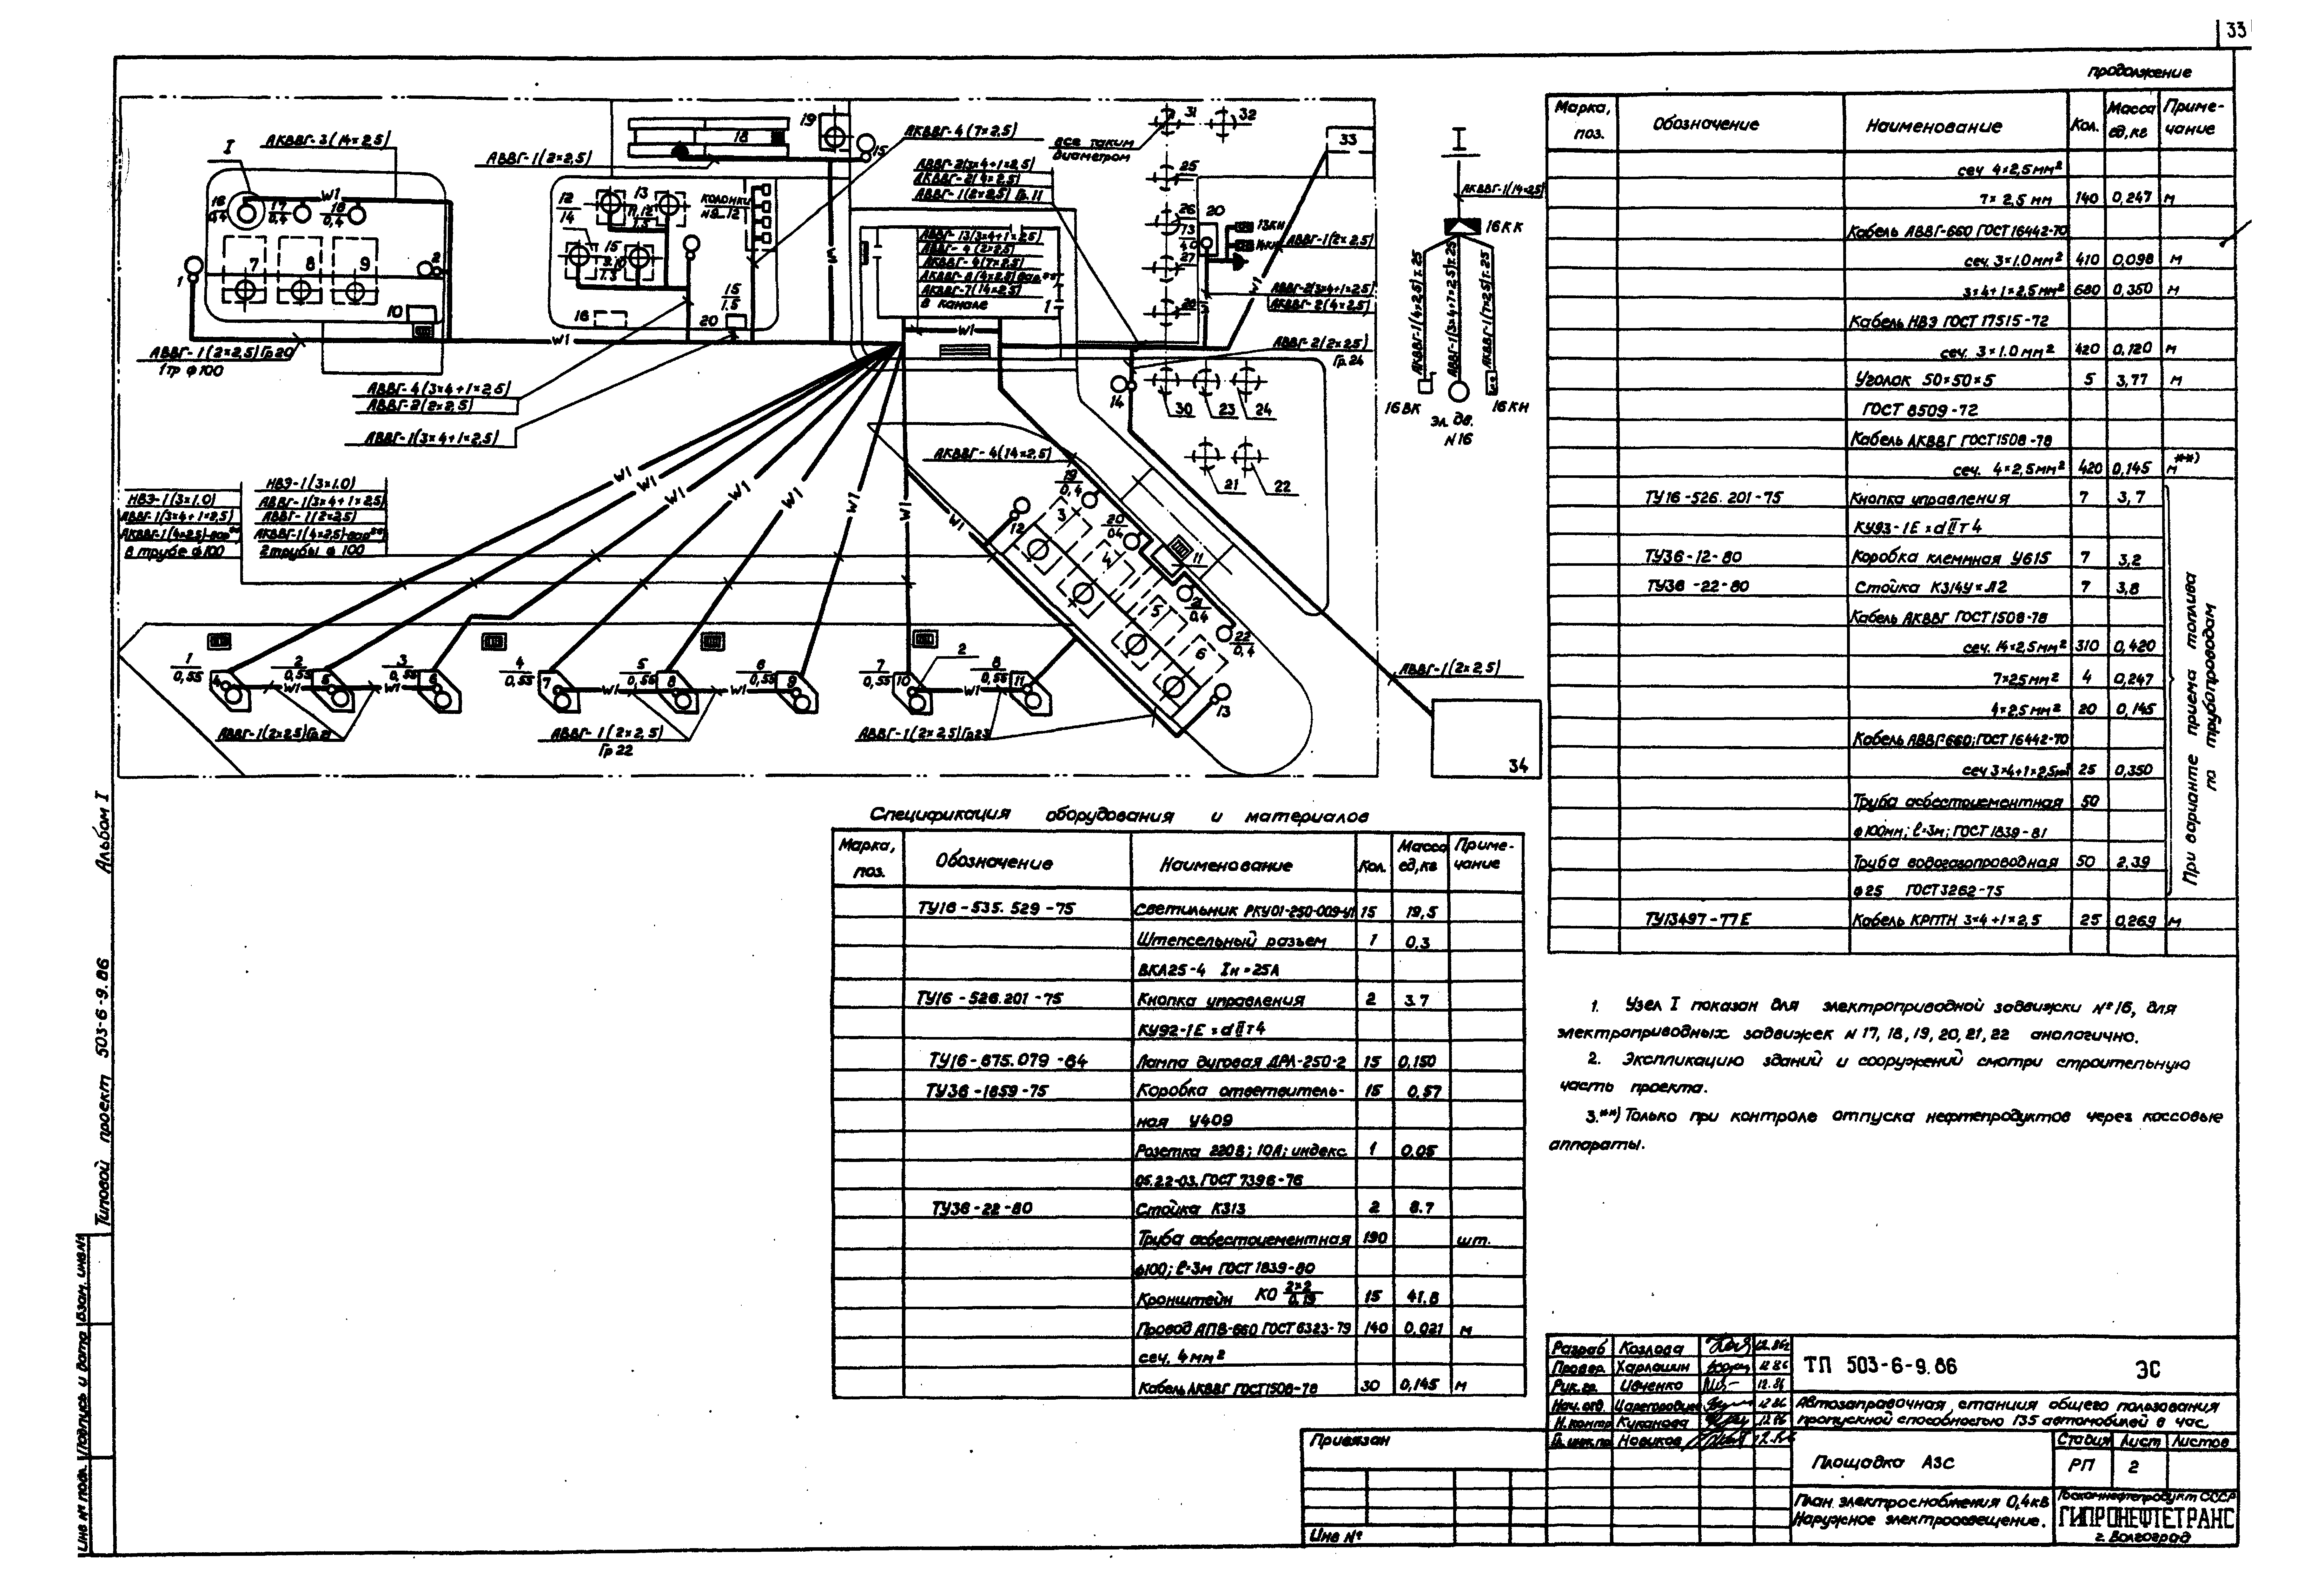 33
продолжение
АКВВГ-3(14×2,5)
I
АВВГ-1(2×2,5)
18
19
15
АКВВГ-4(7×2,5)
все таким
диаметром
31
32
33
I
АВВГ-2(3×4+1×2,5)
АКВВГ-2(4×2,5)
АВВГ-1(2×2,5) Гр.11
25
АКВВГ-1(14×2,5)
W1
16
0,4
17
0,4
18
0,4
12
14
13
11,12
1,5
КОЛОНКИ
N9...12
26
20
13
4,0
13КН
14КН
АВВГ-1(2×2,5)
16КК
АВВГ-13(3×4+1×2,5)
АВВГ-4(2×2,5)
АКВВГ-4(7×2,5)
АКВВГ-7(14×2,5)
в канале
1
7
8
9
2
1
10
15
9,10
1,5
16
15
1,5
20
27
28
АВВГ-2(3×4+1×2,5)
АКВВГ-2(4×2,5)
АКВВГ-1(4×2,5)т.25
АВВГ-1(3×4+1×2,5)т.25
АКВВГ-1(7×2,5)т.25
АВВГ-1(2×2,5)Гр20
1тр ф100
W1
W1
АВВГ-2(2×2,5)
Гр.24
АВВГ-4(3×4+1×2,5)
АВВГ-2(2×2,5)
АВВГ-1(3×4+1×2,5)
14
30
23
24
16ВК
эл. дв.
N16
16КН
АКВВГ-4(14×2,5)
21
22
НВЭ-1(3×1.0)
АВВГ-1(3×4+1×2,5)
в трубе ф100
НВЭ-1(3×1.0)
АВВГ-1(3×4+1×2,5)
АВВГ-1(2×2,5)
2трубы ф 100
W1
W1
W1
W1
W1
W1
W1
W1
12
3
19
0,4
20
0,4
11
4
5
21
0,4
6
22
0,4
13
1
0,55
4
2
0,55
5
3
0,55
6
4
0,55
7
5
0,55
8
6
0,55
9
7
0,55
10
2
8
0,55
11
АВВГ-1(2×2,5)Гр21
АВВГ-1(2×2,5)
Гр 22
АВВГ-1(2×2,5)Гр23
АВВГ-1(2×2,5)
34
Марка, поз. Обозначение Наименование Кол. Масса ед,кг Приме-чание
сеч 4×2,5мм²
7×2,5 мм 140 0,247 м
Кабель АВВГ-660 ГОСТ 16442-70
сеч. 3×1.0мм² 410 0,098 м
3×4+1×2,5мм² 680 0,350 м
Кабель НВЭ ГОСТ 17515-72
сеч. 3×1.0мм² 420 0,120 м
Уголок 50×50×5 5 3,77 м
ГОСТ 8509-72
Кабель АКВВГ ГОСТ1508-78
сеч. 4×2,5мм² 420 0,145 м **)
ТУ16-526.201-75 Кнопка управления 7 3,7
КУ93-1Е×dIIТ4
ТУ36-12-80 Коробка клеммная У615 7 3,2
ТУ36-22-80 Стойка К314У×Л2 7 3,8
Кабель АКВВГ ГОСТ1508-78
сеч. 14×2,5мм² 310 0,420
7×25мм² 4 0,247
4×2,5мм² 20 0,145
Кабель АВВГ-660;ГОСТ16442-70
сеч 3×4+1×2,5мм² 25 0,350
Труба асбестоцементная 50
ф100мм; ℓ=3м; ГОСТ 1839-81
Труба водогазопроводная 50 2,39
ф25 ГОСТ3262-75
ТУ13497-77Е Кабель КРПТН 3×4+1×2,5 25 0,269 м
При варианте приема топлива
по трубопроводам
Спецификация оборудования и материалов
Марка, поз. Обозначение Наименование Кол. Масса ед,кг Приме-чание
ТУ16-535.529-75 Светильник РКУ01-250-009-У1 15 19,5
Штепсельный разъем 1 0,3
ВКА25-4 Iн=25А
ТУ16-526.201-75 Кнопка управления 2 3.7
КУ92-1Е×dIIТ4
ТУ16-675.079-84 Лампа дуговая ДРЛ-250-2 15 0,150
ТУ36-1859-75 Коробка ответвитель- 15 0,57
ная У409
Розетка 220В; 10А; индекс 1 0,05
05.22-03.ГОСТ 7396-76
ТУ36-22-80 Стойка К313 2 8.7
Труба асбестоцементная 190 шт.
ф100; ℓ=3м ГОСТ 1839-80
Кронштейн КО 2×2/0,19 15 41.8
Провод АПВ-660 ГОСТ 6323-79 140 0,021 м
сеч. 4мм²
Кабель АКВВГ ГОСТ1508-78 30 0,145 м
1. Узел I показан для электроприводной задвижки №16, для
электроприводных задвижек N 17, 18, 19, 20, 21, 22 аналогично.
2. Экспликацию зданий и сооружений смотри строительную
часть проекта.
3.**) Только при контроле отпуска нефтепродуктов через кассовые
аппараты.
Типовой проект 503-6-9.86 Альбом I
Инв № подл. Подпись и дата Взам. инв.№
Привязан
Инв №
Разраб Козлова 12.86г
Провер. Харлашин 12.86
Рук.гр. Ивченко 12.86
Нач. отд. Царегородцев 12.86
Н.контр Куканова 12.86
Гл.инж.пр Новиков 12.86
ТП 503-6-9.86 ЭС
Автозаправочная станция общего пользования
пропускной способностью 135 автомобилей в час
Площадка АЗС
Стадия Лист Листов
РП 2
План электроснабжения 0,4кв
Наружное электроосвещение.
Госкомнефтепродукт СССР
ГИПРОНЕФТЕТРАНС
г. Волгоград